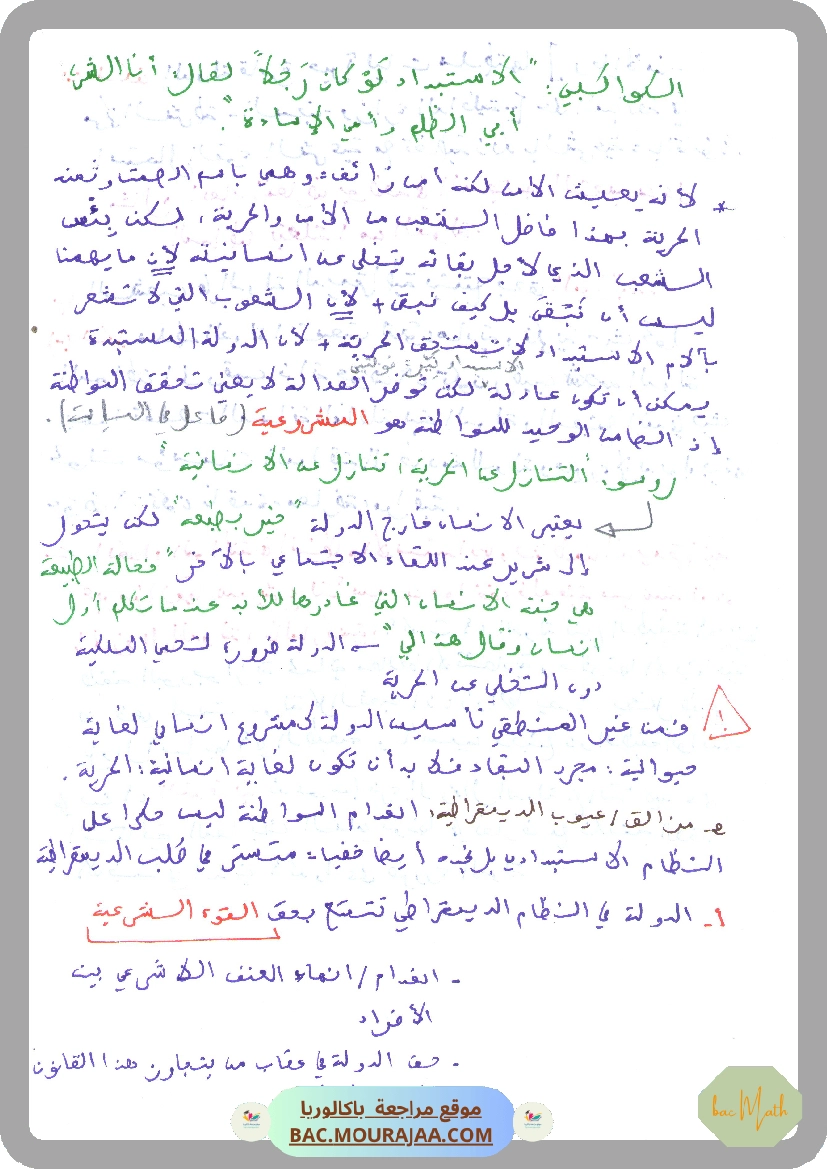 الكواكبي: "الاستبداد لَوْ كان رَجُلاً لقال: أنا الشر،
أبي الظلم وأمي الإساءة".
* لأنه يعيش الأمن لكنه أمن زائف، وهمي باسم الصمت ونعنه
الحرية بهذا فاضل الشعب من الأمن والحرية، لكن بِئْسَ
الشعب الذي لأجل بقائه يتخلى عن انسانيته لأن ما يهمنا
ليس أن نَبْقَى بل كيف نبقى + لأن الشعوب التي لا تشعر
بآلام الاستبداد لا تستحق الحرية + لأن الدولة المستبدة
يمكن ان تكون عادلة لكن توفر العدالة لا يعني تحقق المواطنة
إذ الضامن الوحيد للمواطنة هو المشروعية (فاعل في السياسة).
روسو: "التنازل عن الحرية، تنازل عن الانسانية"
يعتبر الانسان خارج الدولة "خير بطبعه" لكن يتحول
إلى شرير عند اللقاء الاجتماعي بالآخر "فحالة الطبيعة
هي جنة الانسان التي غادرها للأبد عندما تكلم أول
انسان وقال هذا لي" ← الدولة ضرورة لتحمي الملكية
دون التخلي عن الحرية
⚠ فمن غير المنطقي تأسيس الدولة كمشروع انساني لغاية
حيوانية: مجرد البقاء فلا بد أن تكون لغاية انسانية: الحرية.
من الق/عيوب الديمقراطية: انعدام المواطنة ليس حكرا على
النظام الاستبدادي بل نجده أيضا خفيا، متستر في قلب الديمقراطية
أ- الدولة في النظام الديمقراطي تتمتع بحق القوة الشرعية
- انعدام/انهاء العنف اللاشرعي بين
الأفراد
- حق الدولة في عقاب من يتجاوز هذا القانون
موقع مراجعة باكالوريا
BAC.MOURAJAA.COM
bac Math